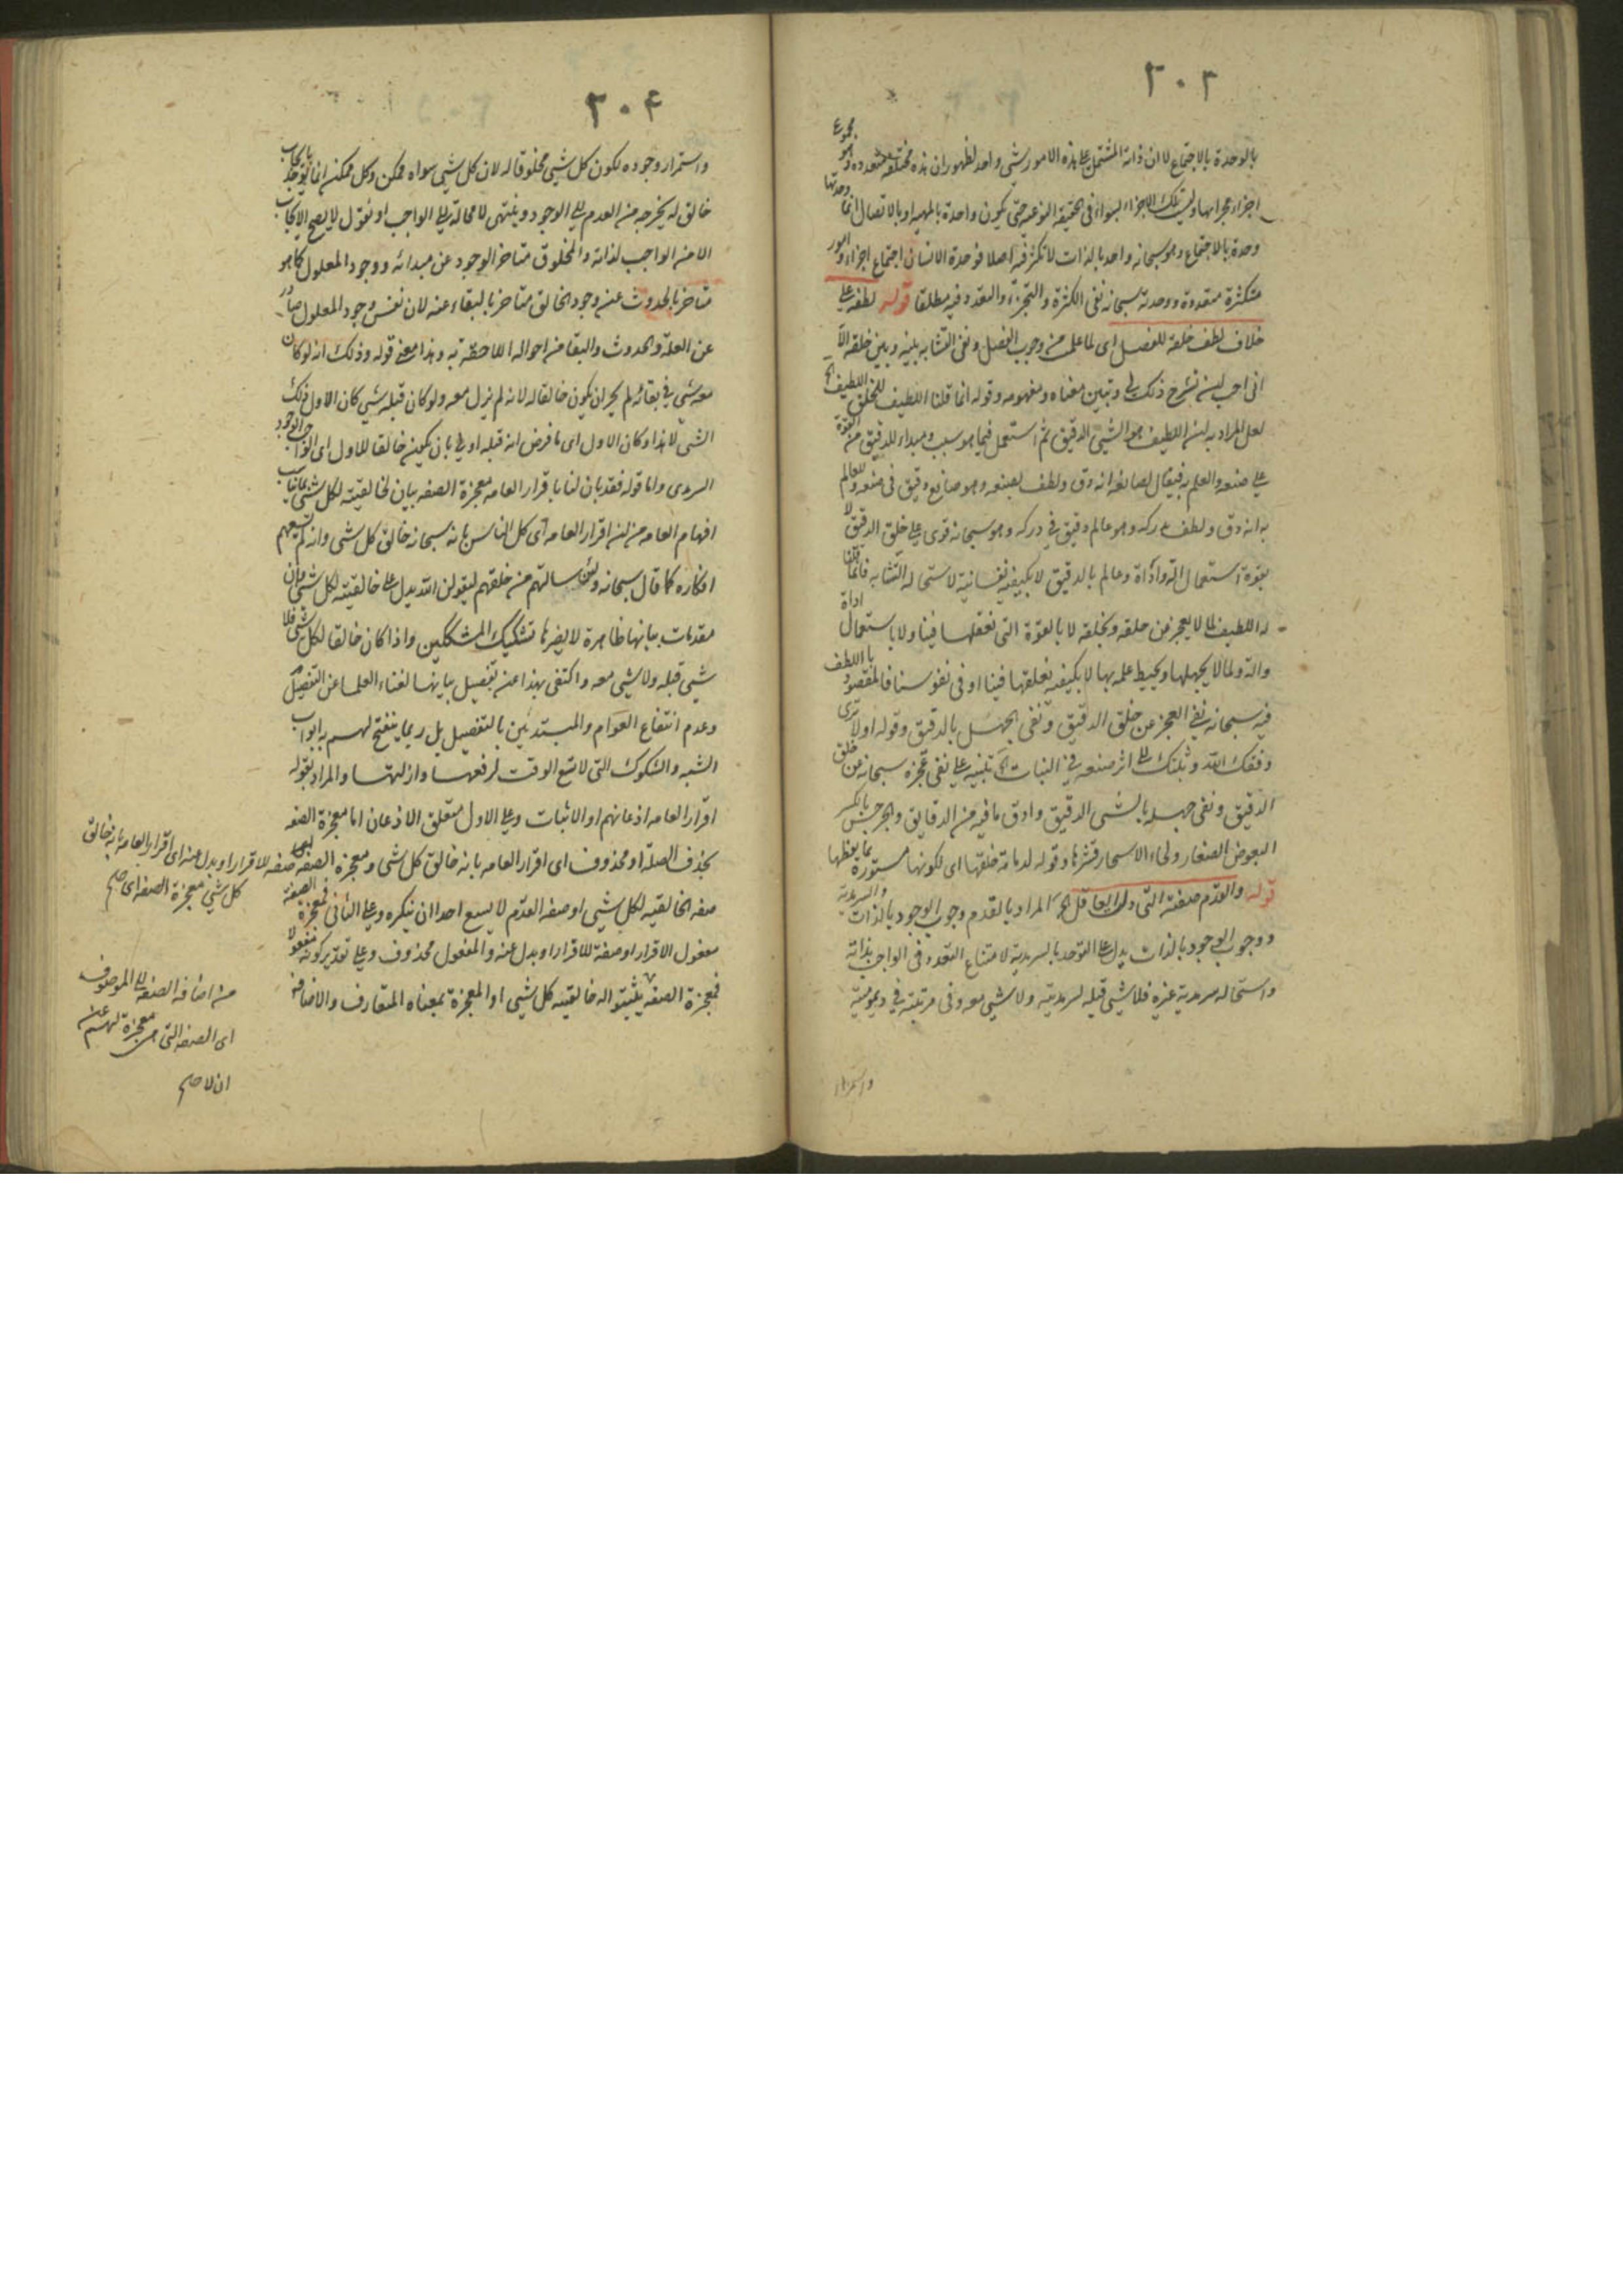 ٣٠٣
بالوحدة بالاجتماع لا ان ذاته المشتمل على هذه الامور شيء واحد لظهور ان هذه مختلفة متعدده وهو مجموع
اجزاء مجراها وليست تلك الاجزاء بسواء في الحقيقه النوعيه حتى يكون واحدة بالمهيه او بالاتصال انما وحدتها
وحدة بالاجتماع وهو سبحانه واحد بالذات لا تكثر فيه اصلا فوحدة الانسان اجتماع اجزاء وامور
متكثرة متعددة ووحدته سبحانه نفى الكثرة والتجزئة والتعدد فيه مطلقا قوله لطفه على
خلاف لطف خلقه للفصل اى لما علمت من وجوب الفصل ونفى التشابه بينه وبين خلقه الا
انى احب ان تشرح ذلك لى وتبين معناه ومفهومه وقوله انما قلنا اللطيف للخلق اللطيف الخ
لعل المراد به ان اللطيف هو الشيء الدقيق ثم استعمل فيما هو سبب ومبداء للدقيق من القوة
على صنعه والعلم به فيقال لصانعه انه دق ولطف بصنعه وهو صانع دقيق في صنعه وللعالم
به انه دق ولطف بدركه وهو عالم دقيق في دركه وهو سبحانه قوى على خلق الدقيق لا
بقوة استعمال الة واداة وعالم بالدقيق لا بكيفيه نفسانية لاستحاله التشابه فانما قلنا
له اللطيف لما لا يعجز من خلقه وبخلقه لا بالقوة التى نعقلها فينا ولا باستعمال اداة
والة ولما لا يجهلها ويحيط علمه بها لا بكيفيه نعلقها فينا او في نفوسنا فالمقصود باللطف
فيه سبحانه نفى العجز عن خلق الدقيق ونفى الجهل بالدقيق وقوله اولا ترى
وفقك الله وثبتك الى اثر صنعه في النبات الخ تنبيه على نفى عجزه سبحانه من خلق
الدقيق ونفى جهله بالشيء الدقيق وادق ما فيه من الدقايق والجرجس بالكسر
البعوض الصغار ولحاء الاشجار قشرها وقوله لدمامة خلقها اى لكونها مستورة بما يغطها
قوله والقدم صفته التى دلت العاقل الخ المراد بالقدم وجوب الوجود بالذات والسرمدية
ووجوب الوجود بالذات يدل على التوحد بالسرمدية لامتناع التعدد فى الواجب بذاته
واستحاله سرمدية غيره فلا شيء قبله لسرمديته ولا شيء معه وفى مرتبته في ديموميته
واستمرار
٣٠٤
واستمرار وجوده لكون كل شيء مخلوقا له لان كل شيء سواه ممكن وكل ممكن انما يوجد بايجاب
خالق له يخرجه من العدم الى الوجود وينتهى لا محالة الى الواجب او نقول لا يصح الايجاب
الا من الواجب لذاته والمخلوق متاخر الوجود عن مبدائه ووجود المعلول كما هو
متاخر بالحدوث عن وجود الخالق متاخر بالبقاء عنه لان نفس وجود المعلول صادر
عن العلة والحدوث والبقا من احواله اللاحقة به وهذا معنى قوله وذلك انه لو كان
معه شيء في بقائه لم يجز ان يكون خالقا له لانه لم يزل معه ولو كان قبله شيء كان الاول ذلك
الشيء لا هذا وكان الاول اى ما فرض انه قبله اولى بان يكون خالقا للاول اى الواجب الوجود
السرمدى واما قوله فقد بان لنا باقرار العامه معجزة الصفه بيان لخالقيته لكل شيء بما يناسب
افهام العامه من ان اقرار العامه اى كل الناس بانه سبحانه خالق كل شيء وانه لم يسعهم
انكاره كما قال سبحانه ولئن سالتهم من خلقهم ليقولن الله يدل على خالقيته لكل شيء وان
مقدمات بيانها ظاهرة لا يضرها تشكيك المشككين واذا كان خالقا لكل شيء فلا
شيء قبله ولا شيء معه واكتفى بهذا عن تفصيل بيانها لغناء العلما عن التفصيل
وعدم انتفاع العوام والمبتدئين بالتفصيل بل ربما ينفتح لهم به ابواب
الشبه والشكوك التى لا تسع الوقت لرفعها وازالتها والمراد بقوله
اقرار العامه اذعانهم او الاثبات وعلى الاول متعلق الاذعان اما معجزة الصفه
بحذف الصلة او محذوف اى اقرار العامه بانه خالق كل شيء ومعجزة الصفه صفه للاقرار او بدل عنه اى اقرار العامه بانه خالق
كل شيء معجزة الصفه اى صح
صفه الخالقيه لكل شيء او صفه القدم لا يسع احدا ان ينكره وعلى الثانى فمعجزة الصفه
مفعول الاقرار او صفة للاقرار او بدل عنه والمفعول محذوف وعلى تقدير كونه مفعولا
فمعجزة الصفه يثبتوا له خالقيته كل شيء او المعجزة بمعناه المتعارف والاضافه
من اضافه الصفه الى الموصوف
اى الصفه التى هى معجزة لهم عن
ان لا صح